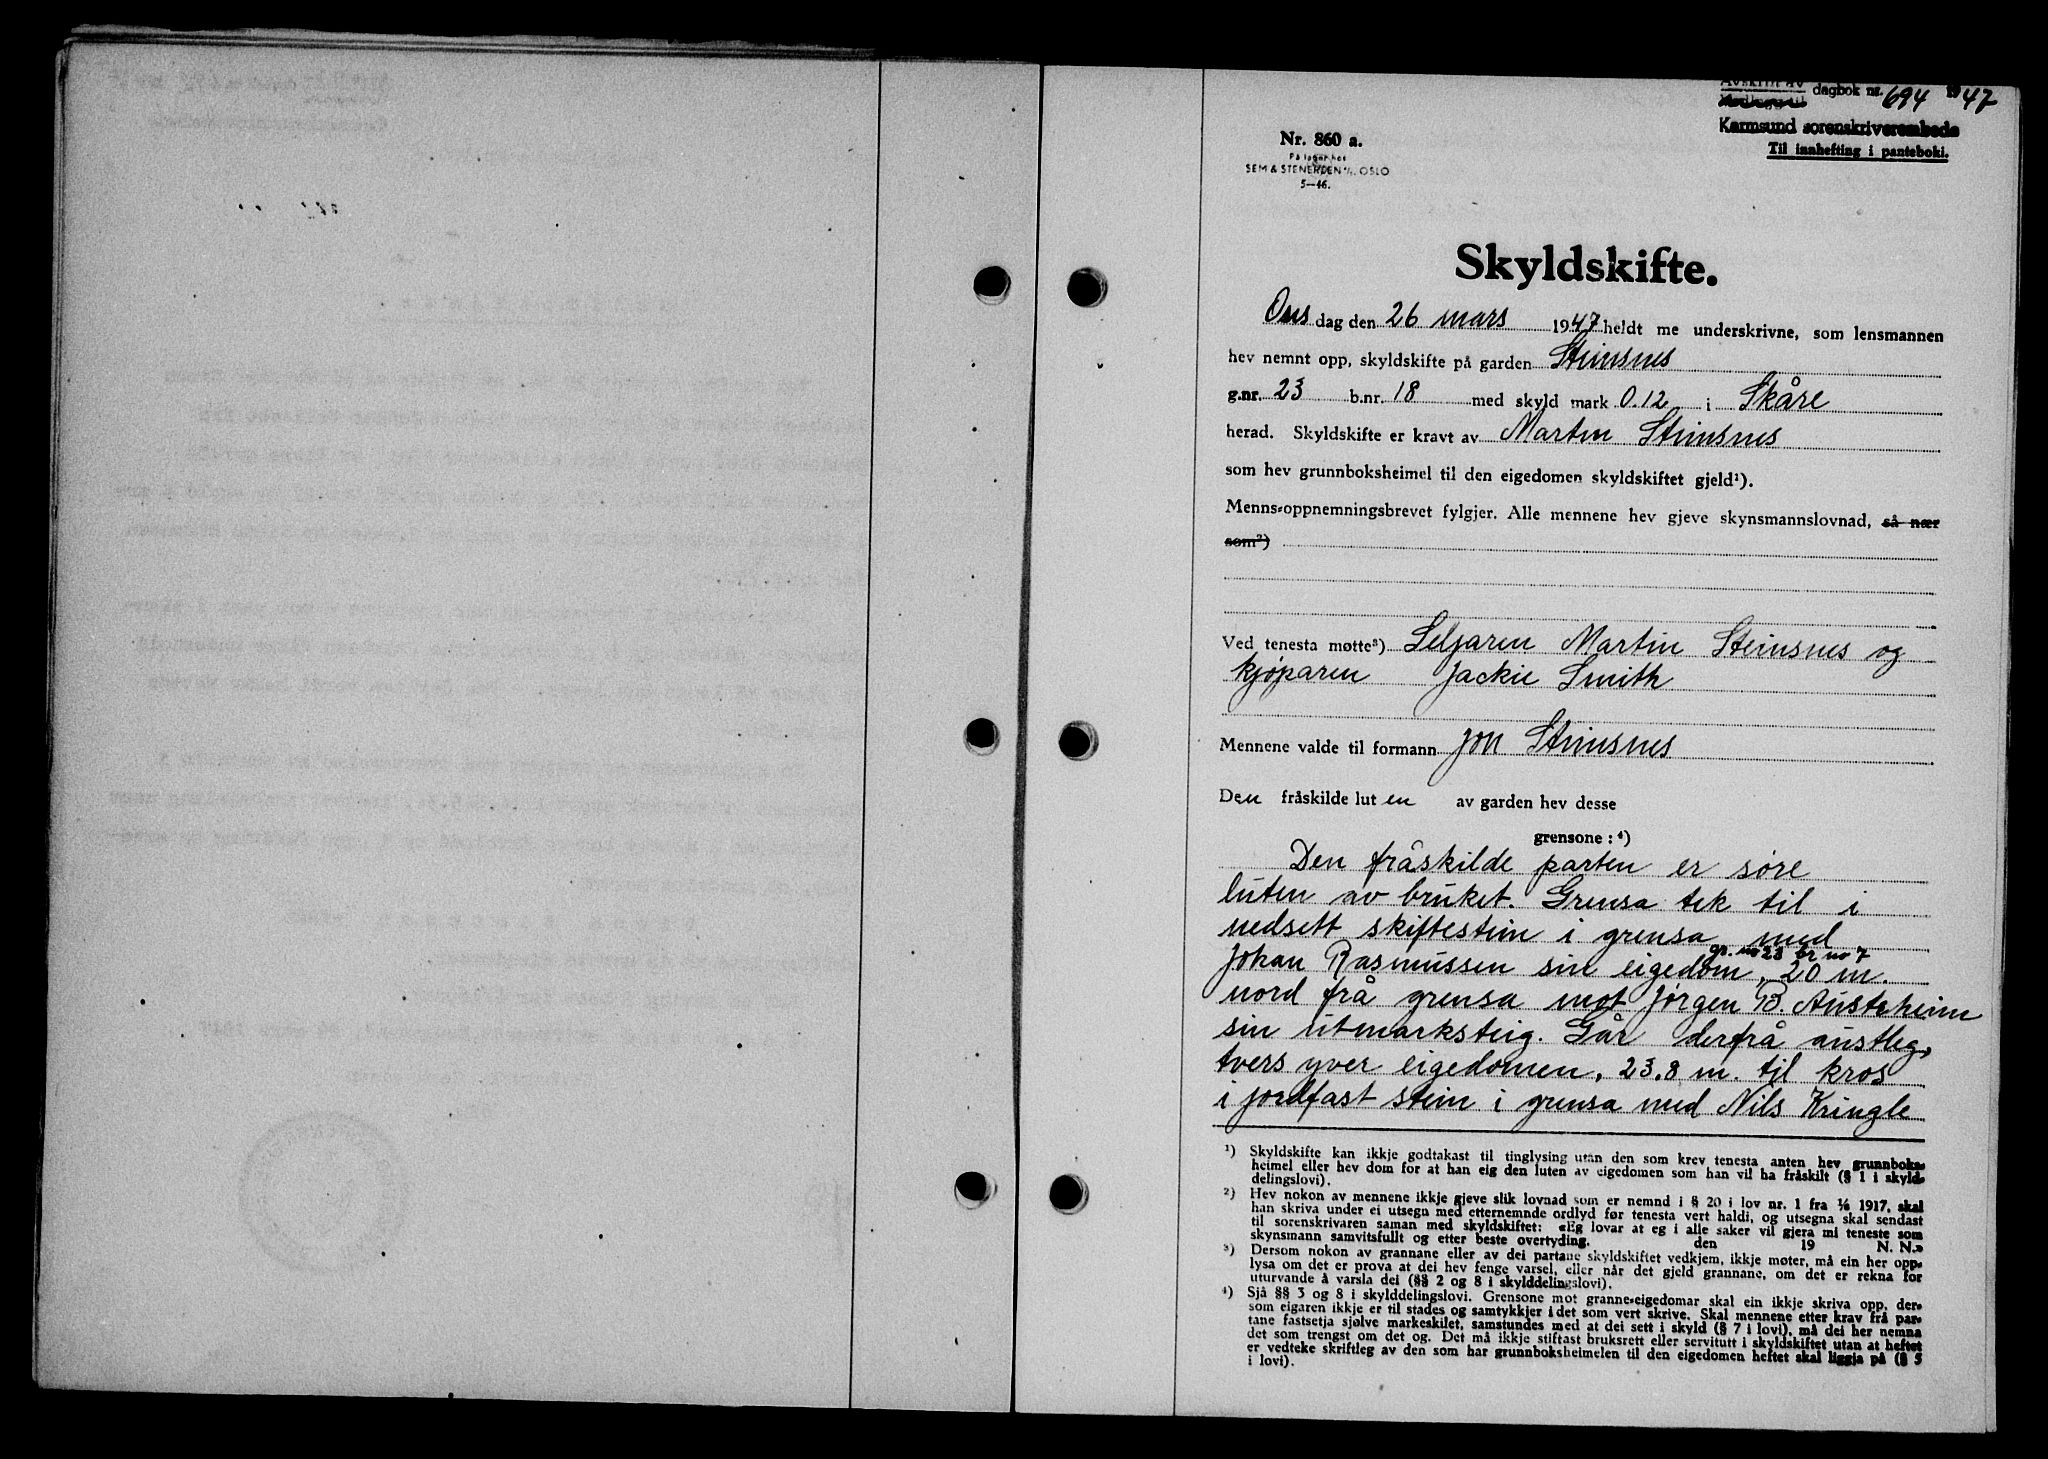 Avskrift av
Vedlegg til dagbok nr. 694 1947
Karmsund sorenskriverembede
Til innhefting i panteboki.
Nr. 860 a.
På lager hos
SEM & STENERSEN A/S. OSLO
5—46.
Skyldskifte.
Ons dag den 26 mars 1947 heldt me underskrivne, som lensmannen
hev nemnt opp, skyldskifte på garden Steinsnes
g.nr. 23 b.nr. 18 med skyld mark 0.12 i Skåre
herad. Skyldskifte er kravt av Martin Steinsnes
som hev grunnboksheimel til den eigedomen skyldskiftet gjeld¹).
Menns-oppnemningsbrevet fylgjer. Alle mennene hev gjeve skynsmannslovnad, så nær
som²)
Ved tenesta møtte³) Seljaren Martin Steinsnes og
kjøparen Jackie Smith
Mennene valde til formann Jon Steinsnes
Den fråskilde luten av garden hev desse
grensone:⁴)
Den fråskilde parten er søre
luten av bruket. Grensa tek til i
nedsett skiftestein i grensa med
gr. no 23 br no 7
Johan Rasmussen sin eigedom, 20 m.
nord frå grensa mot Jørgen B. Austrheim
sin utmarksteig. Går derfrå austleg,
tvers yver eigedomen, 23.8 m. til kros
i jordfast stein i grensa med Nils Kringle
¹) Skyldskifte kan ikkje godtakast til tinglysing utan den som krev tenesta anten hev grunnboks-
heimel eller hev dom for at han eig den luten av eigedomen som han vil ha fråskilt (§ 1 i skyld-
delingslovi).
²) Hev nokon av mennene ikkje gjeve slik lovnad som er nemnd i § 20 i lov nr. 1 fra 1/6 1917, skal
han skriva under ei utsegn med etternemnde ordlyd før tenesta vert haldi, og utsegna skal sendast
til sorenskrivaren saman med skyldskiftet: «Eg lovar at eg i alle saker vil gjera mi teneste som
skynsmann samvitsfullt og etter beste overtyding. den 19 N. N.»
³) Dersom nokon av grannane eller av dei partane skyldskiftet vedkjem, ikkje møter, må ein her opp-
lysa om det er prova at dei hev fenge varsel, eller når det gjeld grannane, om det er rekna for
uturvande å varsla dei (§§ 2 og 8 i skylddelingslovi).
⁴) Sjå §§ 3 og 8 i skylddelingslovi. Grensone mot granne-eigedomar skal ein ikkje skriva opp, der-
som eigaren ikkje er til stades og samtykkjer i det som vert skrive. Skal mennene etter krav frå par-
tane fastsetja sjølve markeskilet, samstundes med at dei sett i skyld (§ 7 i lovi), må dei her nemna
det som trengst om det og. Det må ikkje stiftast bruksrett eller servitutt i skyldskiftet utan at heftet
er vedteke skriftleg av den som har grunnboksheimelen til den eigedomen heftet skal liggja på (§ 5
i lovi).